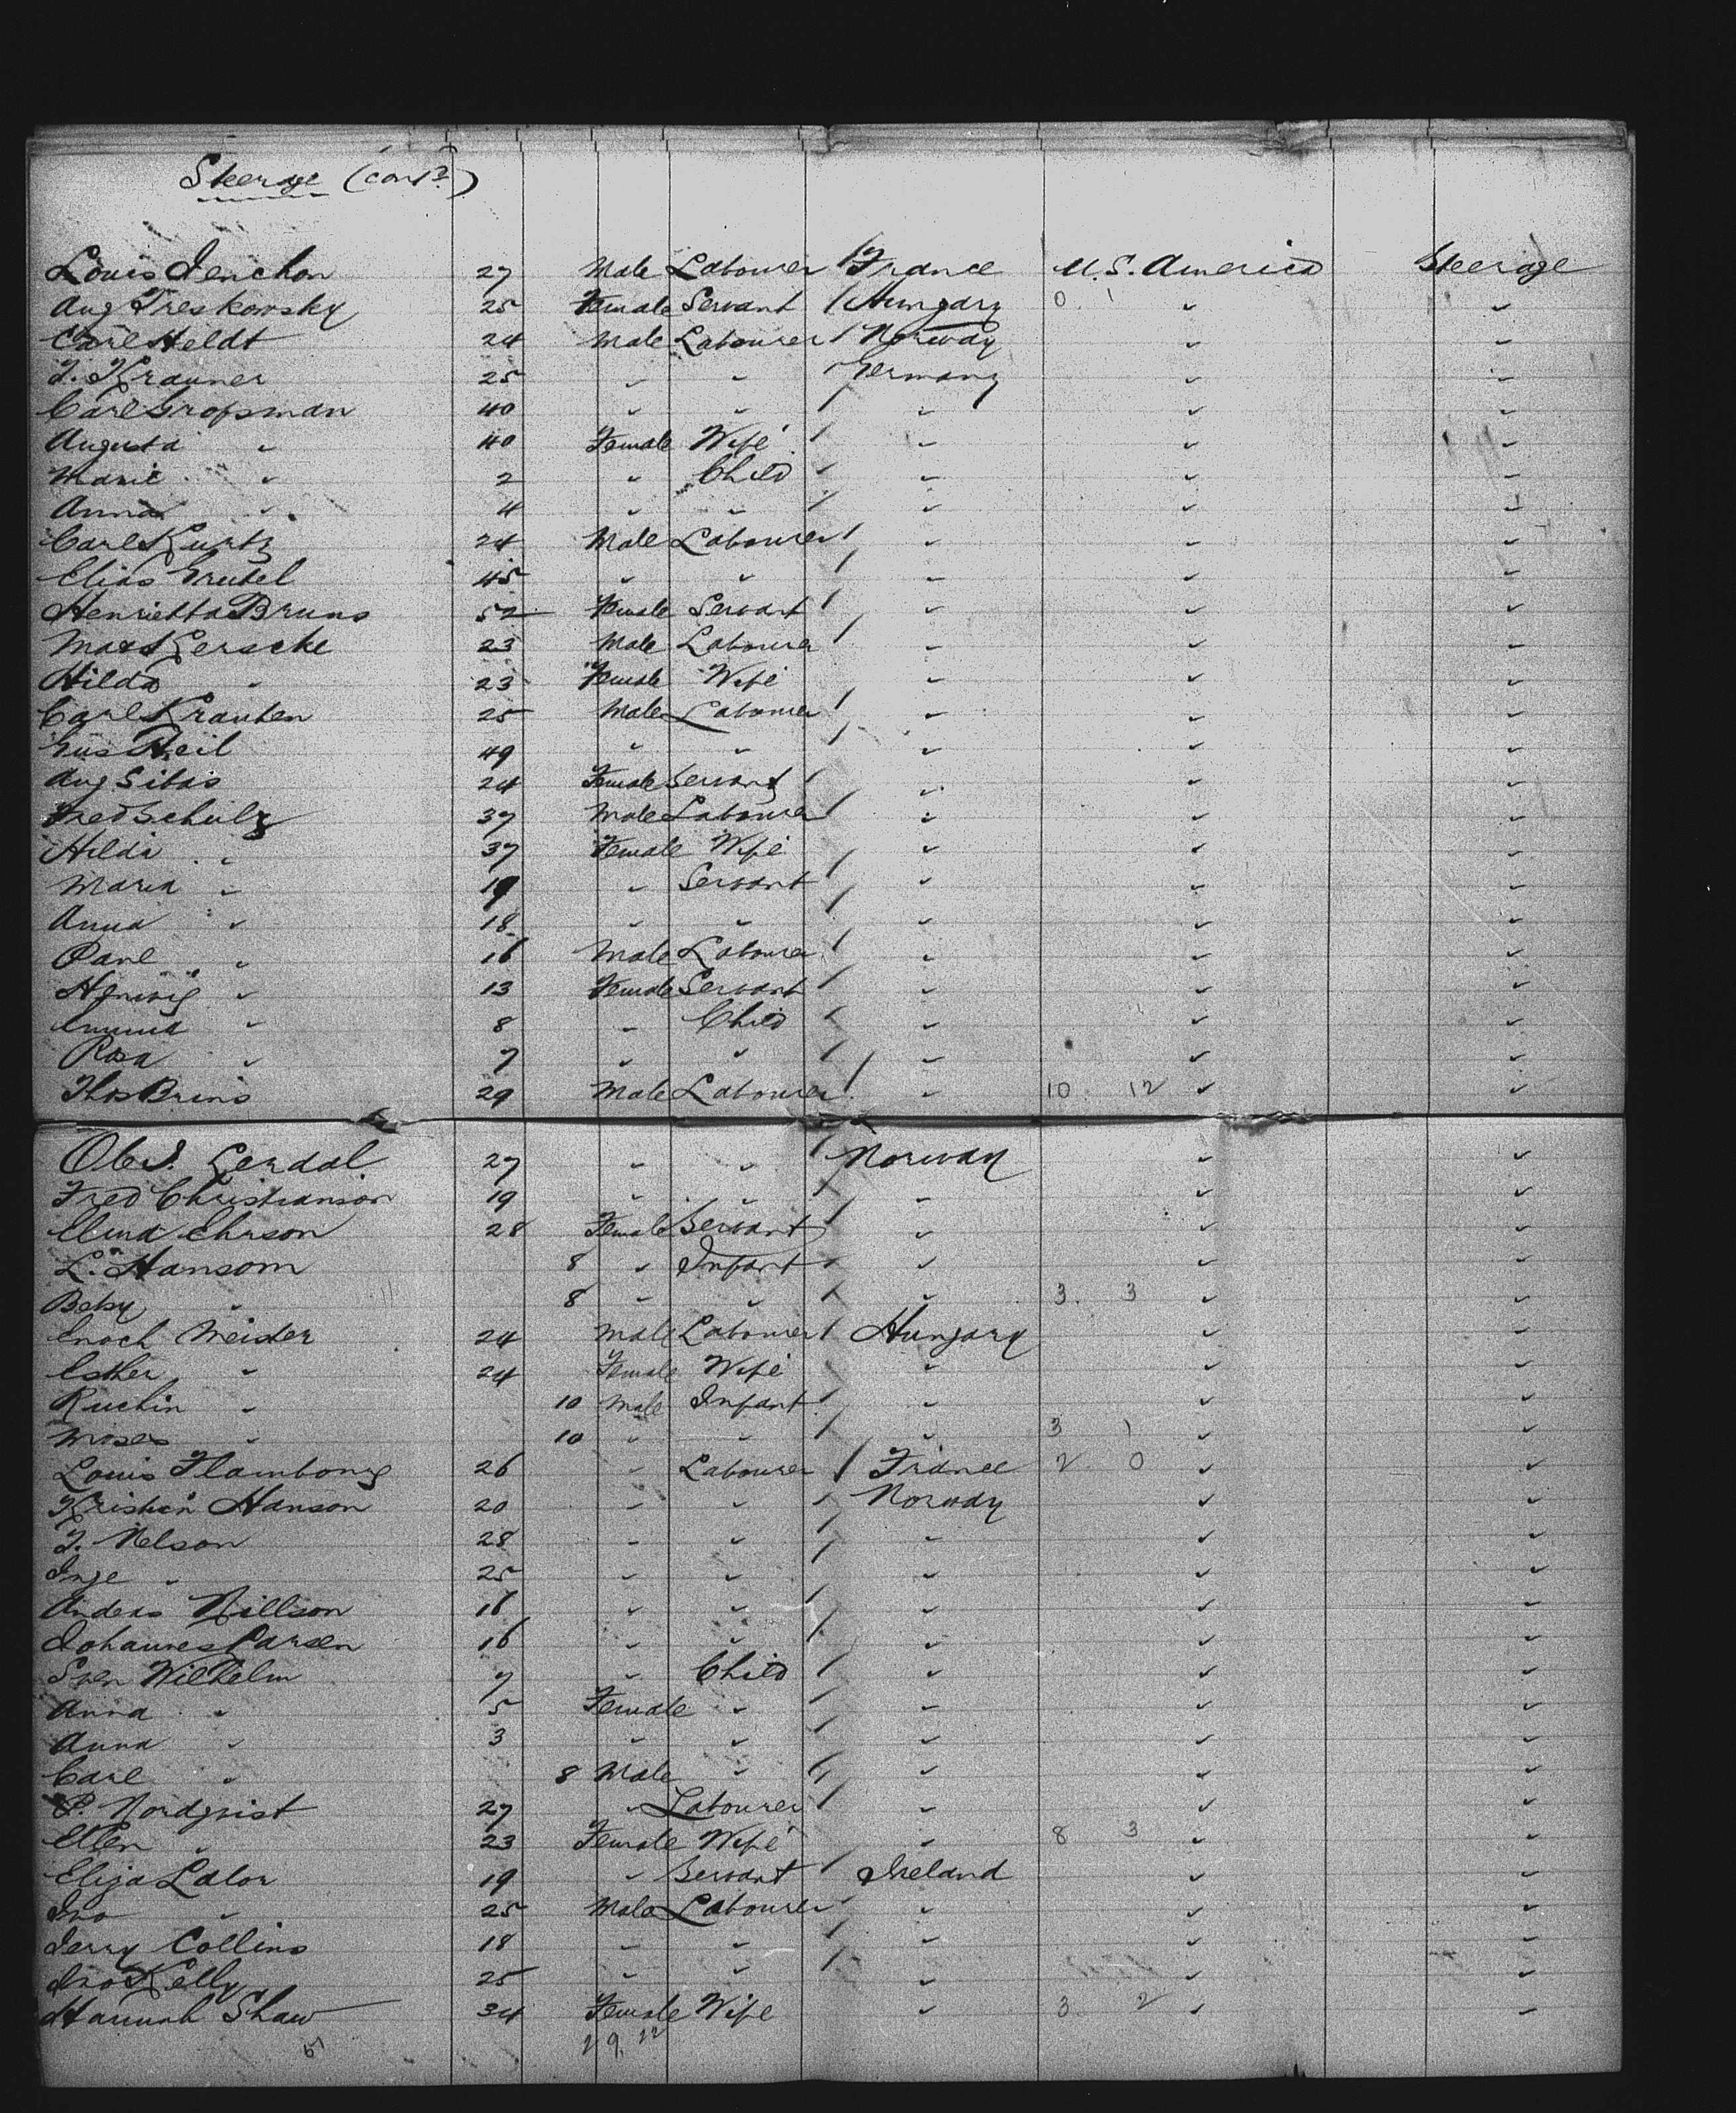 Steerage (contd)
Louis Jenchon 27 Male Labourer / France U.S. America Steerage
Aug Treskowsky 25 Female Servant / Hungary 0 1 " "
Carl Heldt 24 Male Labourer / Norway " "
J. Krauner 25 " " Germany " "
Carl Gropsman 40 " " / " " "
Augusta " 40 Female Wife / " " "
Marie " 2 " Child / " " "
Anna " 4 " " / " " "
Carl Kurtz 24 Male Labourer / " " "
Elias Grutel 45 " " / " " "
Henrietta Bruns 52 Female Servant / " " "
Max Gerscke 23 Male Labourer / " " "
Hilda " 23 Female Wife " " "
Carl Krauten 25 Male Labourer / " " "
Gus Heil 49 " " / " " "
Aug Sibas 24 Female Servant / " " "
Fred Schulz 37 Male Labourer / " " "
Hilda " 37 Female Wife / " " "
Maria " 19 " Servant / " " "
Anna " 18 " " / " " "
Paul " 16 Male Labourer / " " "
Henwig " 13 Female Servant / " " "
Emma " 8 " Child / " " "
Rosa " 7 " " / " " "
Thos Brins 29 Male Labourer / " 10 12 " "
Ole J. Lerdal 27 " " / Norway " "
Fred Christianson 19 " " / " " "
Elma Ehrson 28 Female Servant / " " "
L. Hansom 8 " Infant / " " "
Betsy " 8 " " / " 3 3 " "
Enoch Meister 24 Male Labourer / Hungary " "
Esther " 24 Female Wife " " "
Ruchin " 10 Male Infant / " " "
Moses " 10 " " / " 3 1 " "
Louis Flambong 26 " Labourer / France 2 0 " "
Kristian Hanson 20 " " / Norway " "
J. Nelson 28 " " / " " "
Inge " 25 " " " " "
Anders Nillson 16 " " / " " "
Johannes Larsen 16 " " / " " "
Sven Wilhelm 7 " Child / " " "
Anna " 5 Female " / " " "
Anna " 3 " " / " " "
Carl " 8 Male " / " " "
P. Nordqvist 27 " Labourer / " " "
Ellen " 23 Female Wife " 8 3 " "
Eliza Lalor 19 " Servant / Ireland " "
Jno " 25 Male Labourer / " " "
Jerry Collins 18 " " / " " "
Jno Kelly 25 " " / " " "
Hannah Shaw 34 Female Wife " 3 2 " "
51 29. 22